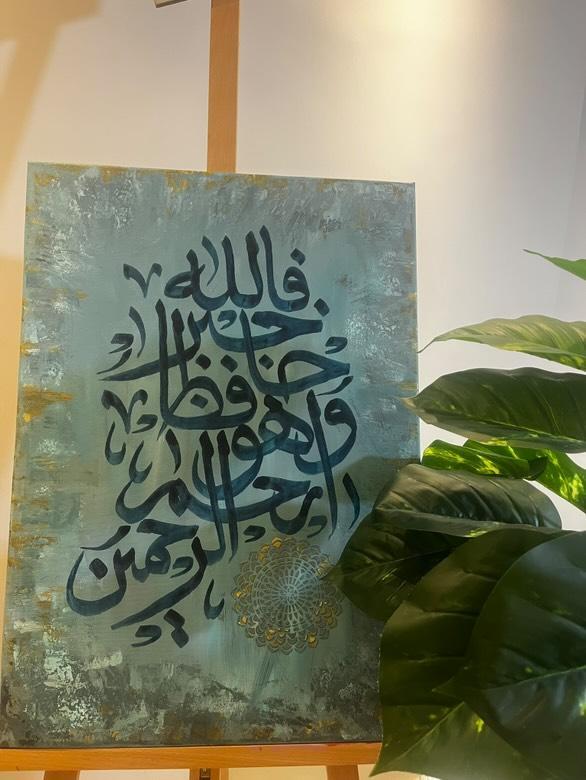 فالله
خير
حافظا
وهو
أرحم
الرحمين